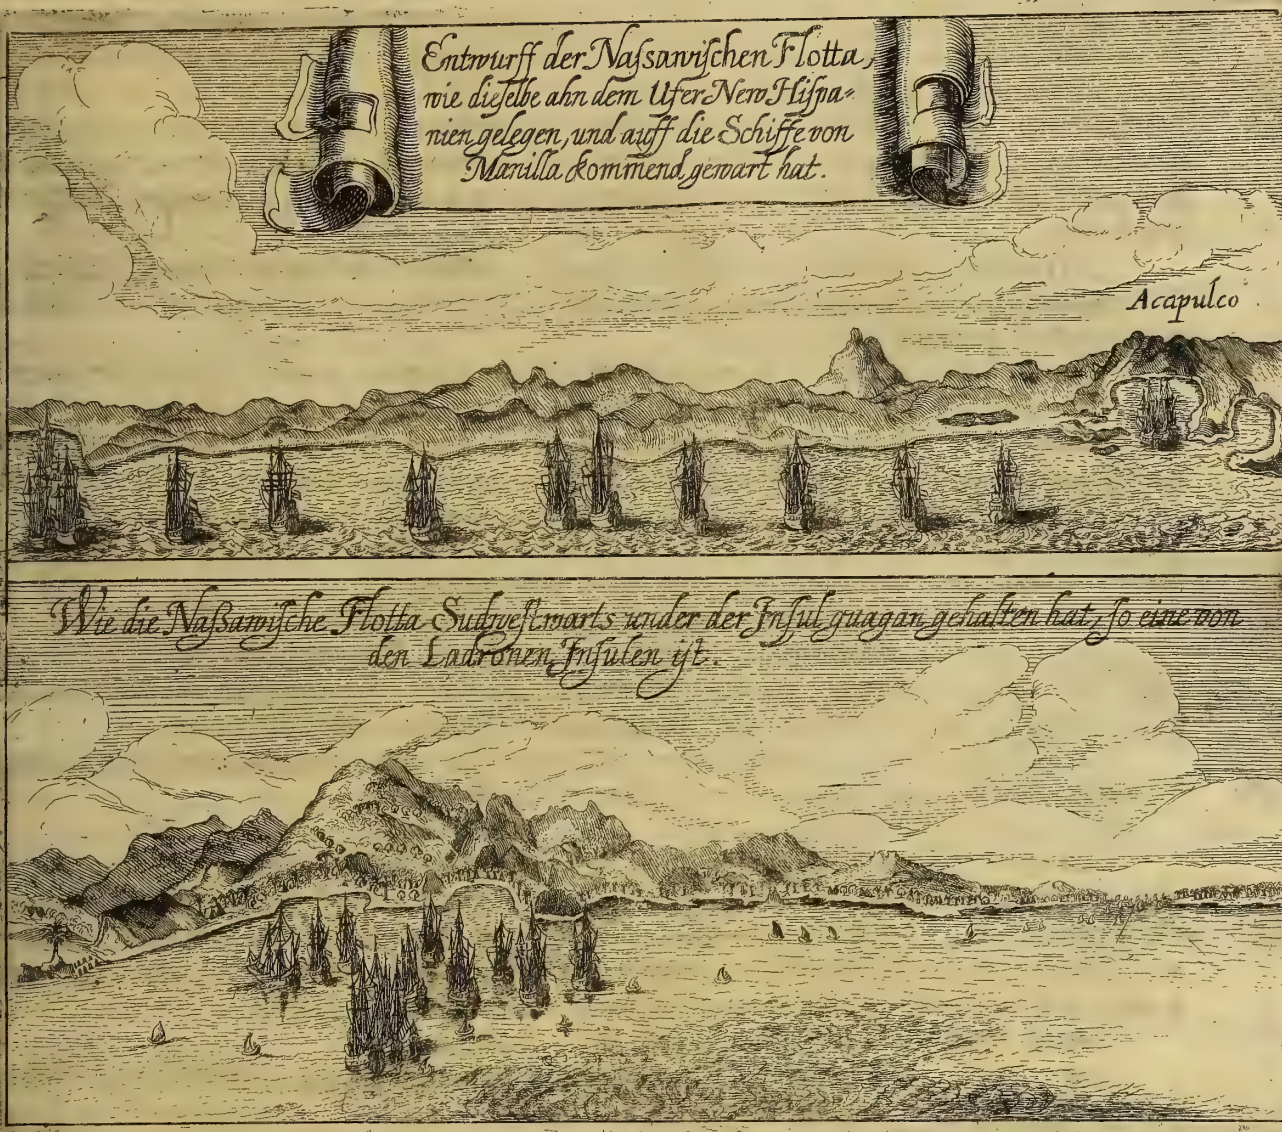 Entwurff der Naſsawiſchen Flotta,
wie dieſelbe ahn dem Ufer New Hiſpa⸗
nien gelegen, und auff die Schiffe von
Manilla kommend, gewart hat.
Acapulco
Wie die Naſßawiſche Flotta Sudweſtwarts under der Inſul guagan gehalten hat, ſo eine von
den Ladronen Inſulen iſt.